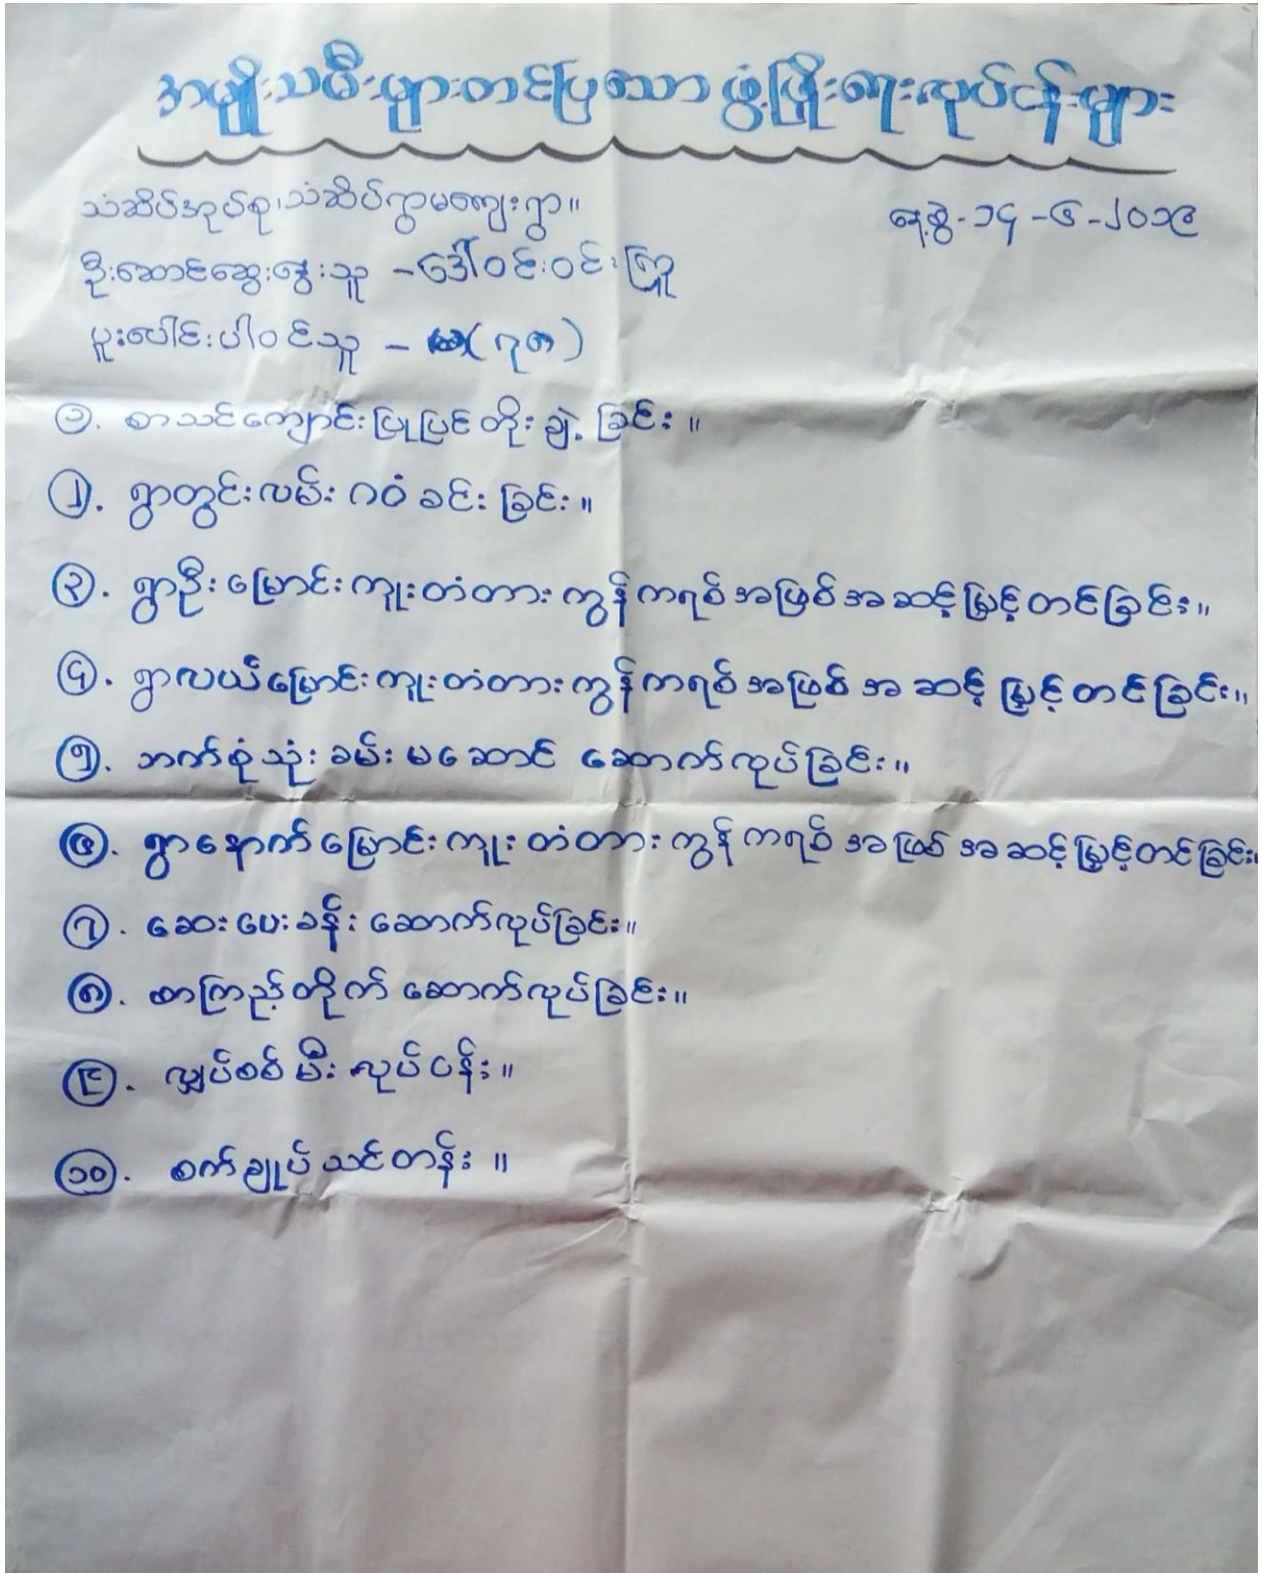 အမျိုးသမီးများတင်ပြသော ဖွံ့ဖြိုးရေးလုပ်ငန်းများ
သံဆိပ်အုပ်စု၊သံဆိပ်ကွာမကျေးရွာ။
နေ့စွဲ-၁၄-၆-၂၀၁၉
ဦးဆောင်ဆွေးနွေးသူ -ဒေါ်ဝင်းဝင်းကြူ
ပူးပေါင်းပါဝင်သူ - (၇၈)
၁. စာသင်ကျောင်းပြုပြင်တိုးချဲ့ခြင်း။
၂. ရွာတွင်းလမ်း ဂဝံခင်းခြင်း။
၃. ရွာဦးမြောင်းကူးတံတားကွန်ကရစ်အဖြစ်အဆင့်မြှင့်တင်ခြင်း။
၄. ရွာလယ်မြောင်းကူးတံတားကွန်ကရစ်အဖြစ်အဆင့်မြှင့်တင်ခြင်း။
၅. ဘက်စုံသုံးခမ်းမဆောင် ဆောက်လုပ်ခြင်း။
၆. ရွာနောက်မြောင်းကူးတံတားကွန်ကရစ်အဖြစ်အဆင့်မြှင့်တင်ခြင်း။
၇. ဆေးပေးခန်းဆောက်လုပ်ခြင်း။
၈. စာကြည့်တိုက်ဆောက်လုပ်ခြင်း။
၉. လျှပ်စစ်မီးလုပ်ငန်း။
၁၀. စက်ချုပ်သင်တန်း။